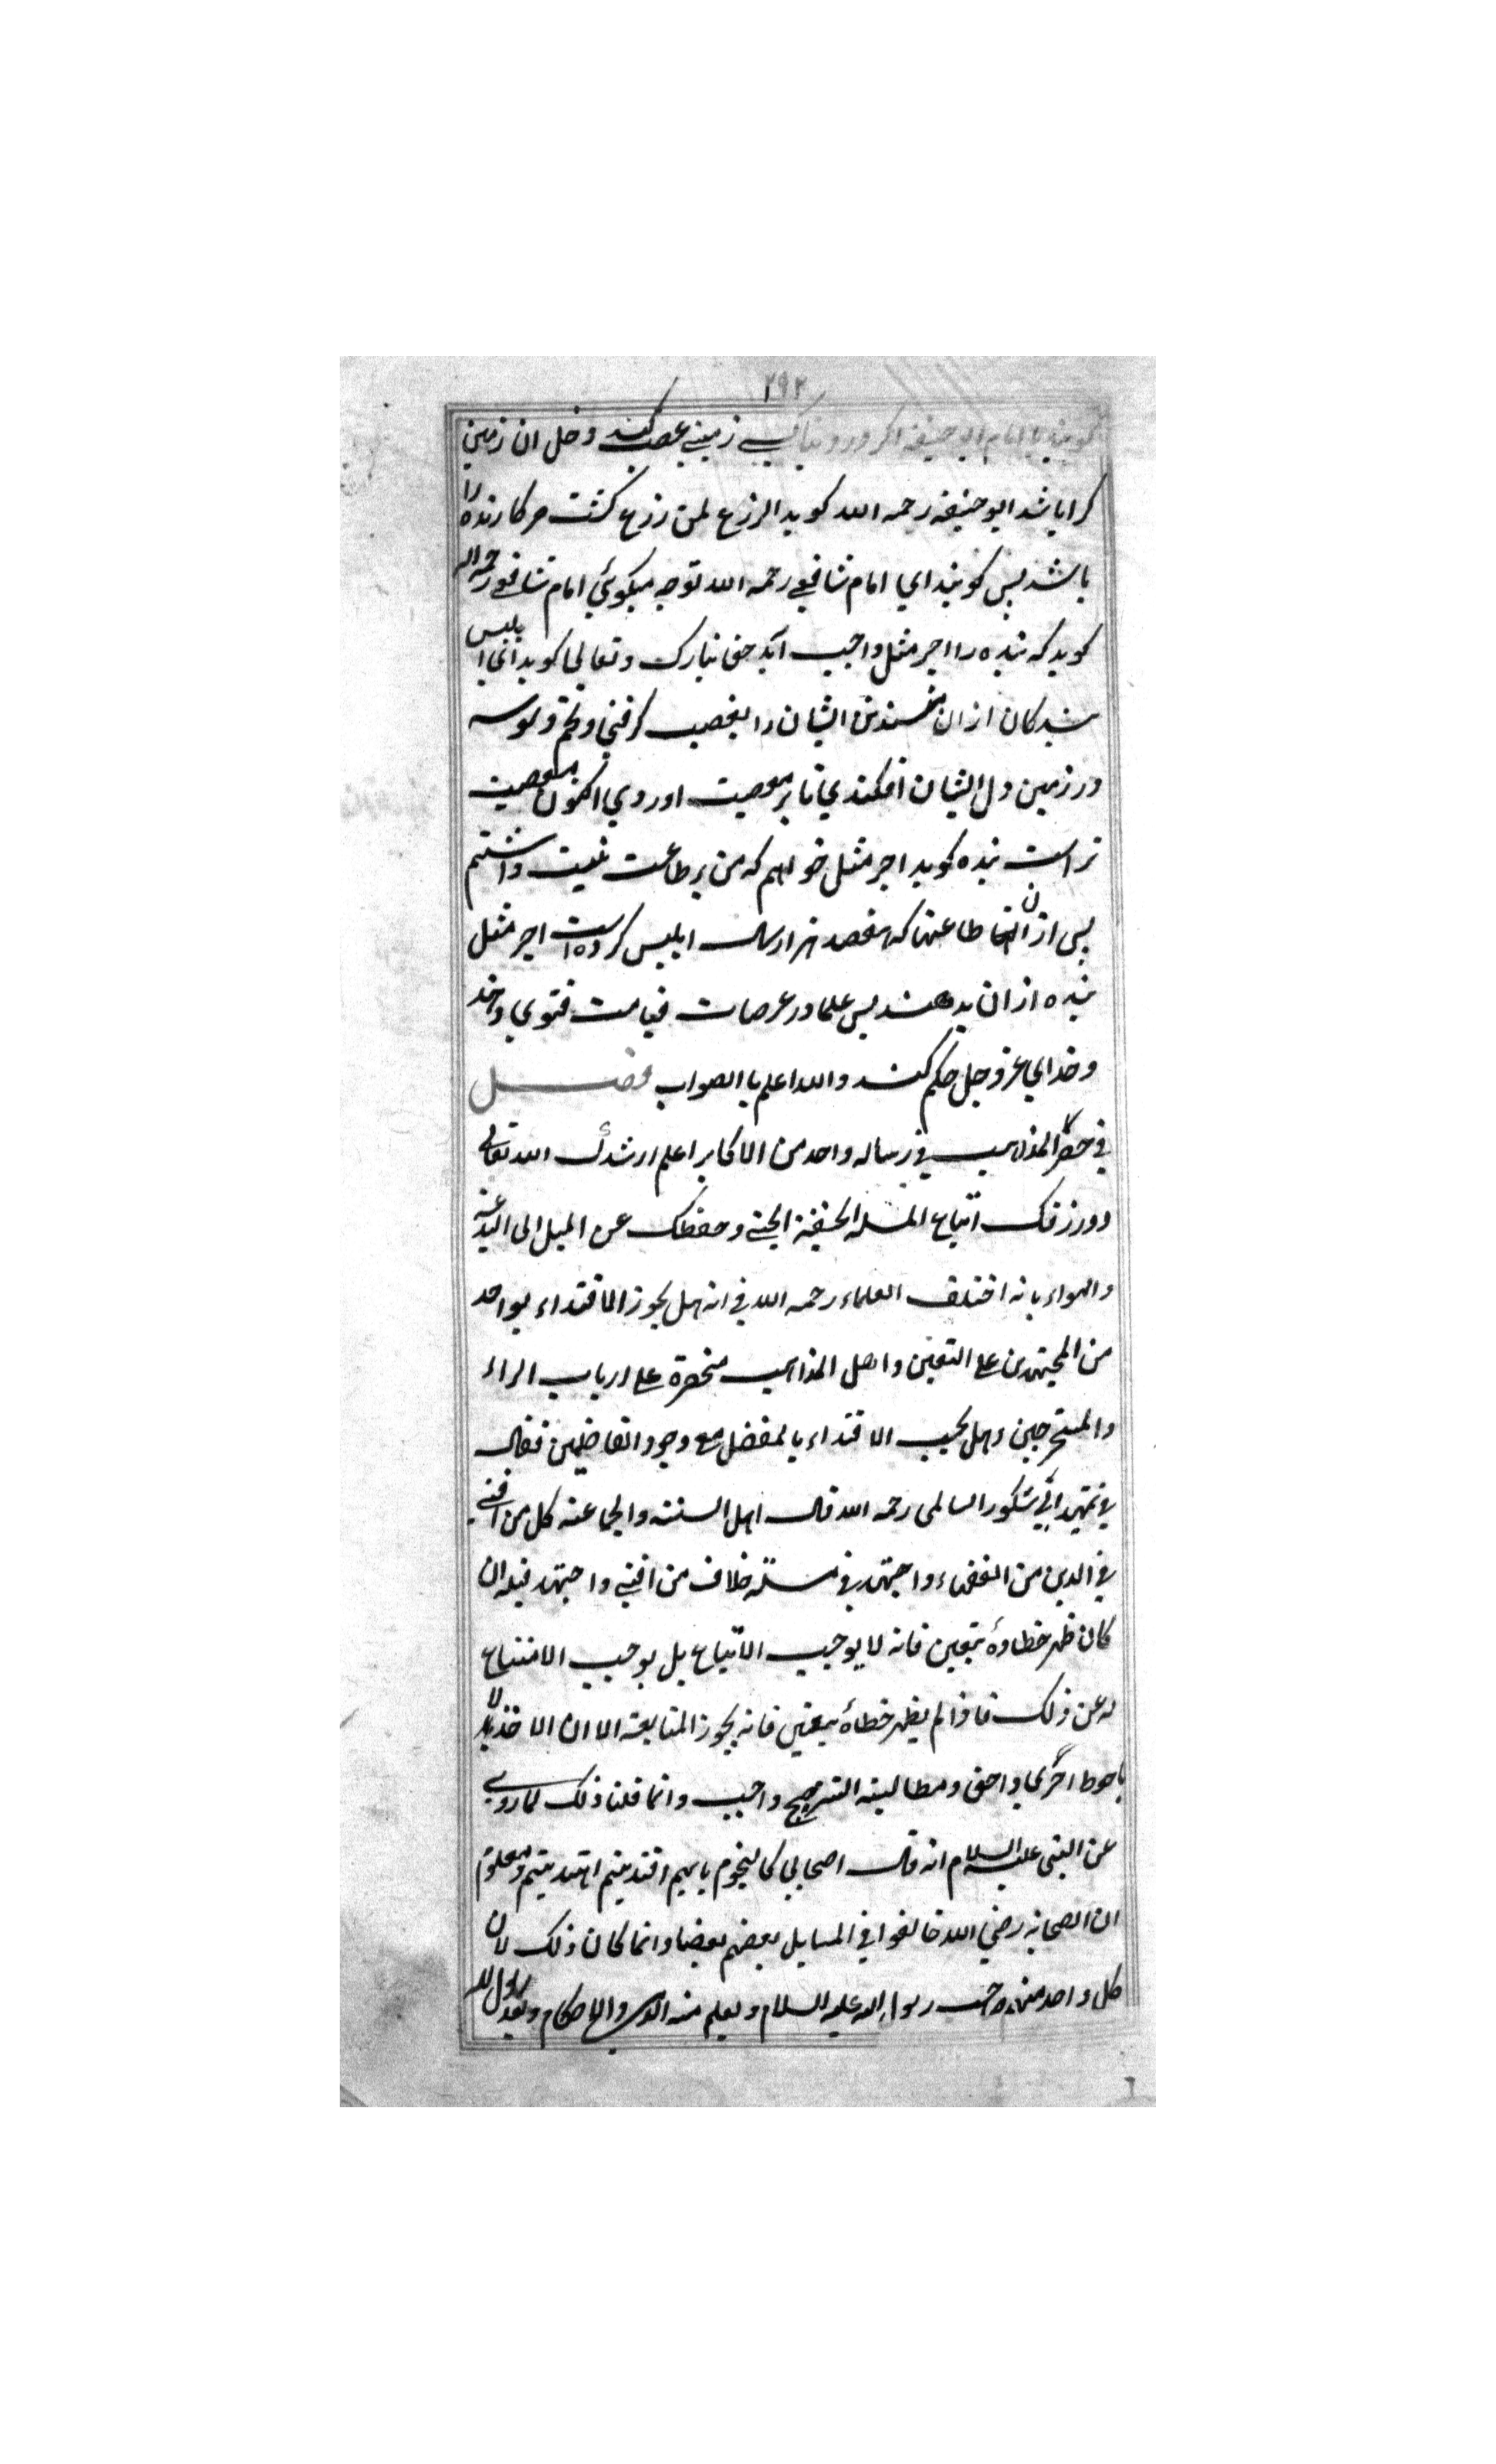 ٢٩٢
گویند یا امام ابو حنیفه اگر در دنیا کسے زمینے غصب کند دخل ان زمین
کرا باشد ابو حنیفه رحمه الله کوید الزرع لمن زرع کشت مر کارنده را
باشد پس کویند ای امام شافعے رحمه الله تو چه میکوئی امام شافعے رحمه الله
کوید که بنده را اجر مثل واجب آید حق تبارک و تعالی کوید ای ابلیس
بندکان از ان من بودند ایشان را بغصب کرفتی و تخم وسوسه
در زمین دل ایشان افکندی تا بر معصیت اوردی اکنون معصیت
تراست بنده کوید اجر مثل خواهم که من بر طاعت نیت داشتم
پس از ان طاعتها که هفصد هزار سال ابلیس کرده است اجر مثل
بنده از ان بدهند پس علما در عرصات قیامت فتوی دهند
و خدای عز وجل حکم کند والله اعلم باالصواب فصل
فی حصر المذاهب فی رساله واحد من الاکابر اعلم ارشدک الله تعالی
و ورزقک اتباع المله الحنفیة و حفظک عن المیل الی البدعة
والهواء بانه اختلف العلماء رحمه الله فی انه هل یجوز الاقتداء بواحد
من المجتهدین علی التعین و اهل المذاهب منحصرة علی ارباب الراء
والمستخرجین وهل یجب الاقتداء بالمفضل مع وجود الفاضلین فقال
فی تمهید ابی شکور السالمی رحمه الله قال اهل السنته والجماعته کل من افتی
فی الدین من الفقهاء واجتهد فی مسئلة خلاف من افتی واجتهد قبله ان
کان ظهر خطاؤهٔ بتعین فانه لا یوجب الاتباع بل یوجب الامتناع
له عن ذلک فاذا لم یظهر خطاهٔ بیقین فانه یجوز المتابعته الا ان الاخذ
باحوط احری واحق ومطالبته الترجیح واجب وانما قلنا ذلک لما روی
عن النبی علیه السلام انه قال اصحابی کالنجوم بایهم اقتدیتم اهتدیتم ومعلوم
ان الصحابه رضی الله خالفوا فی المسایل بعضهم بعضا وانما کان ذلک لان
کل واحد منهم صحب رسول الله علیه السلام وتعلم منه الدین والاحکام وبعد رسول الله